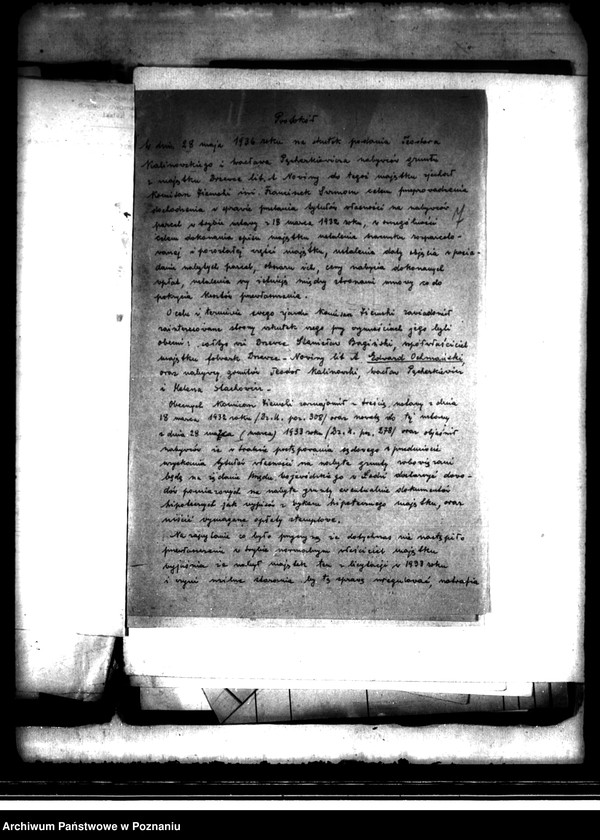 Protokół
W dnia 28 maja 1936 roku na skutek podania Teodora
Kalinowskiego i Wacława Pęcherkiewicza nabywców gruntu
z majątku Drzewce lit. A Nowiny do tegoż majątku zjechał
Komisarz Ziemski inż. Franciszek Szumon celem przeprowadzenia
dochodzenia w sprawie przelania tytułów własności na nabywców
parcel w trybie ustawy z 18 marca 1932 roku, w szczególności
celem dokonania opisu majątku ustalenia stosunku rozparcelo-
wanej i pozostałej części majątku, ustalenia daty objęcia w posia-
danie nabytych parcel, obszaru ich, ceny nabycia dokonanych
wpłat, ustalenia czy istnieją między stronami umowy co do
pokrycia kosztów przewłaszczenia.
O celu i terminie swego zjazdu Komisarz Ziemski zawiadomił
zainteresowane strony wskutek czego przy czynnościach jego byli
obecni: sołtys wsi Drzewce Stanisław Bagiński, współwłaściciel
majątku folwark Drzewce-Nowiny lit. A Edward Ochmański,
oraz nabywcy gruntów Teodor Kalinowski, Wacław Pęcherkiewicz
i Helena Stachowicz.
Obecnych Komisarz Ziemski zaznajomił z treścią ustawy z dnia
18 marca 1932 roku /Dz.U. poz. 308/ oraz noweli do tej ustawy
z dnia 28 (marca) 1933 roku /Dz.U. poz. 278/ oraz objaśnił
nabywców że w trakcie postępowania sądowego o przeniesienie
uzyskania tytułów własności na nabyte grunty zobowiązani
będą na żądanie Urzędu Wojewódzkiego w Łodzi dostarczyć dowo-
dów pomiarowych na nabyte grunty ewentualnie dokumentów
hipotecznych jak wypisów z wykazu hipotecznego majątku, oraz
uiścić wymagane opłaty stemplowe.
Na zapytanie co było przyczyną że dotychczas nie nastąpiło
przewłaszczenie w trybie normalnym właściciel majątku
wyjaśnia że nabył majątek ten z licytacji w 1933 roku
i czyni usilne starania by tę sprawę uregulować, natrafia
Archiwum Państwowe w Poznaniu